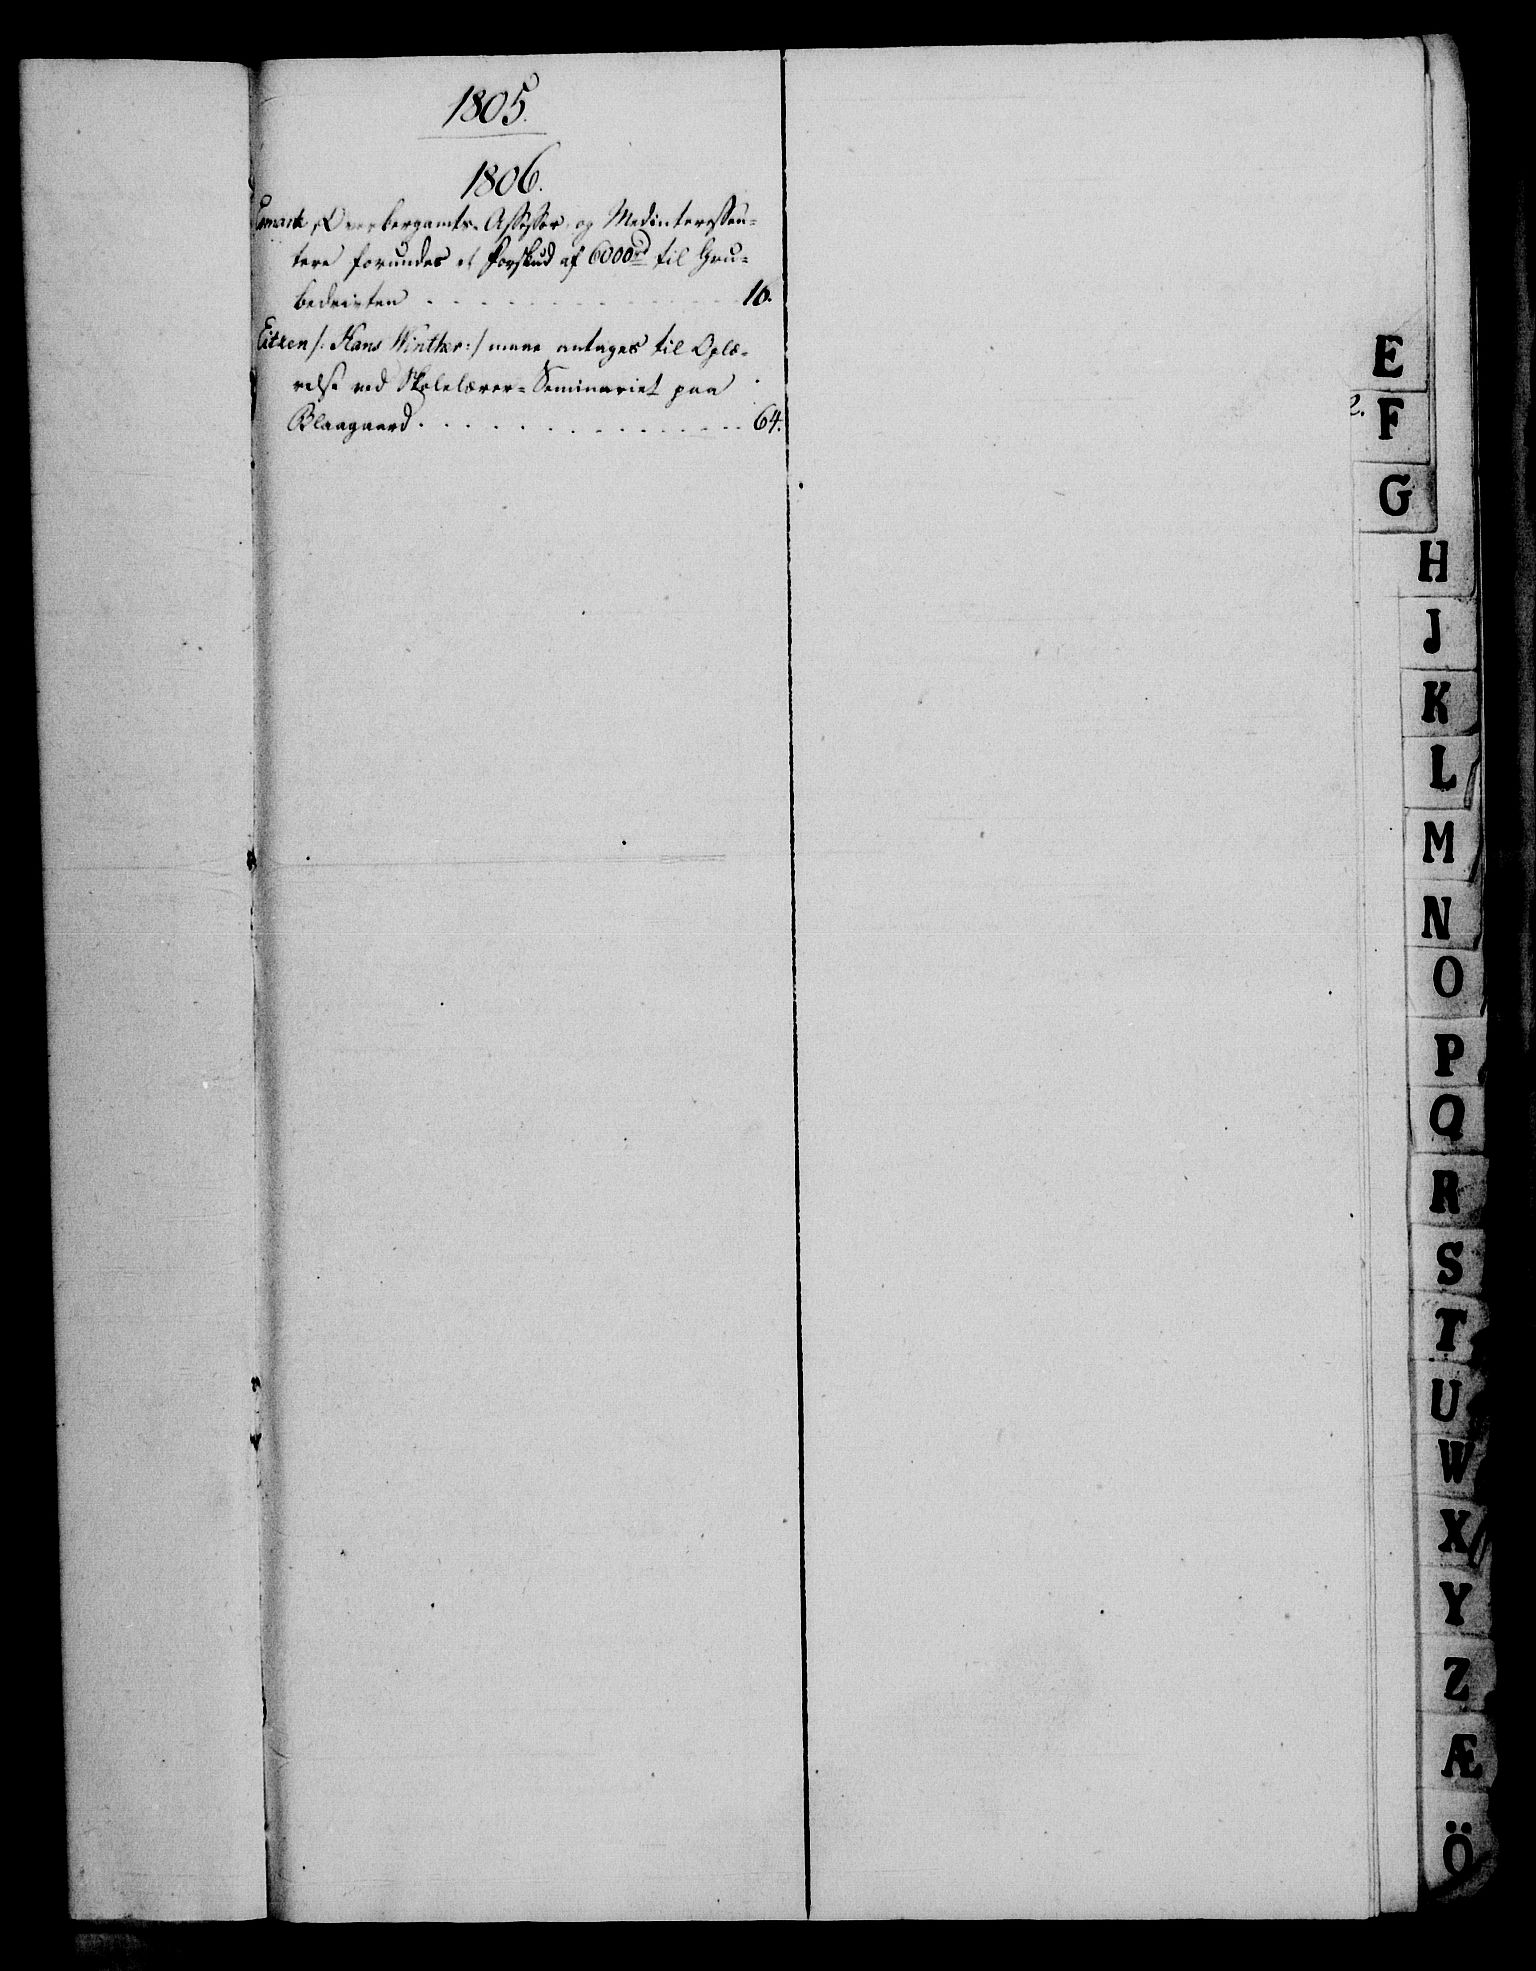 1805.
1806.
Esmark, Overbergamts-Assessor, og Medinteressen-
tere forundes et Forskud af 6000 rd til Gru-
bedriften 16.
Eitzen /: Hans Winther:/ maae antages til Oplæ-
relse ved Skolelærer-Seminariet paa
Blaagaard 64.
E
2.
F
G
H
J
K
L
M
N
O
P
Q
R
S
T
U
W
X
Y
Z
Æ
Ö